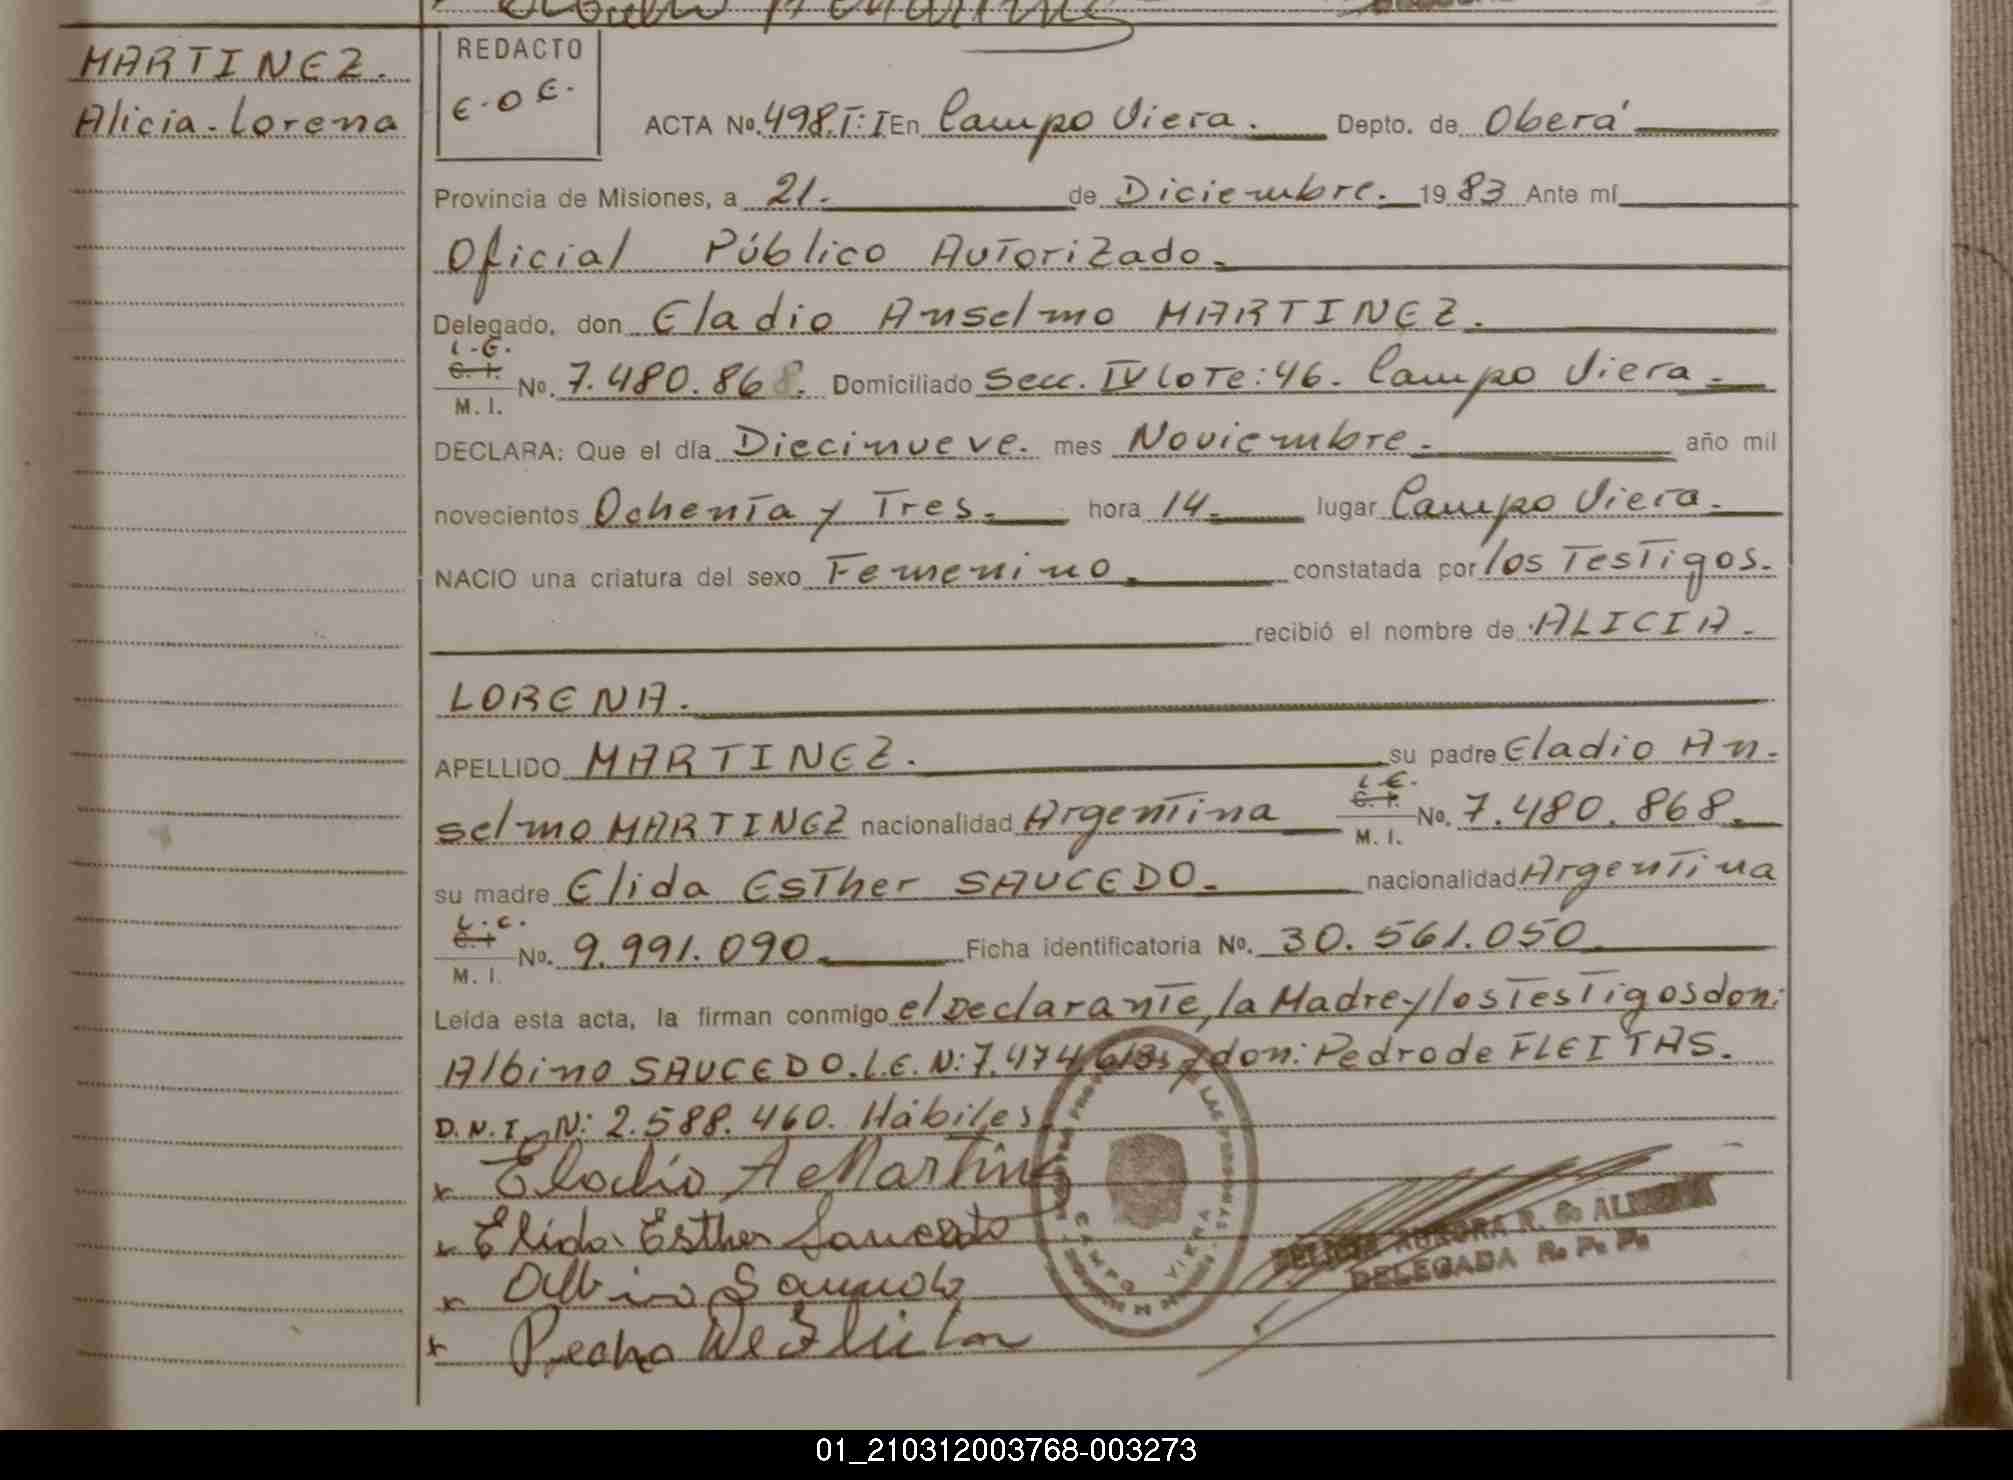 MARTINEZ.
Alicia-Lorena
REDACTO
E.O.E.
ACTA No. 498.T:I En Campo Viera. Depto. de Oberá
Provincia de Misiones, a 21. de Diciembre. 1983 Ante mí
Oficial Público Autorizado.
Delegado, don Eladio Anselmo MARTINEZ.
L.E.
C.I.
M.I. No. 7.480.868. Domiciliado Secc. IV Lote:46. Campo Viera.
DECLARA: Que el día Diecinueve. mes Noviembre. año mil
novecientos Ochenta y Tres. hora 14. lugar Campo Viera.
NACIO una criatura del sexo Femenino. constatada por los Testigos.
recibió el nombre de ALICIA.
LORENA.
APELLIDO MARTINEZ. su padre Eladio An.
selmo MARTINEZ nacionalidad Argentina L.E. C.I. M.I. No. 7.480.868.
su madre Elida Esther SAUCEDO. nacionalidad Argentina
L.C.
C.I.
M.I. No. 9.991.090 Ficha identificatoria No. 30.561.050
Leída esta acta, la firman conmigo el Declarante, la Madre y los Testigos don:
Albino SAUCEDO. L.E. N: 7.474.613 y don: Pedro de FLEITAS.
D.N.I. N: 2.588.460. Hábiles
x Eladio A Martinez
x Elida Esther Saucedo
x Albino Saucedo
x Pedro De Fleitas
LAS PERSONAS
CAMPO VIERA
AURORA R. de
DELEGADA R. P. P.
01_210312003768-003273